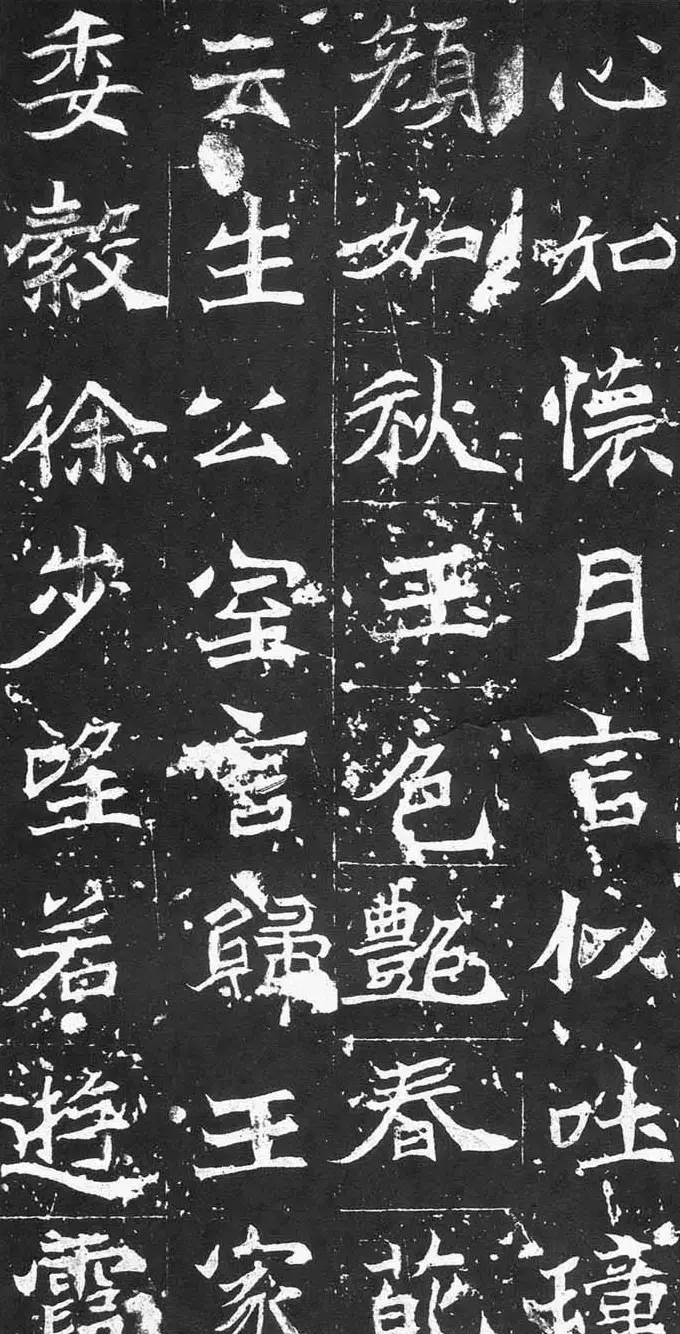 心如懷月言似吐璋
顏如秋玉色艷春葩
云生公室言歸王家
委縠徐步望若遊霞